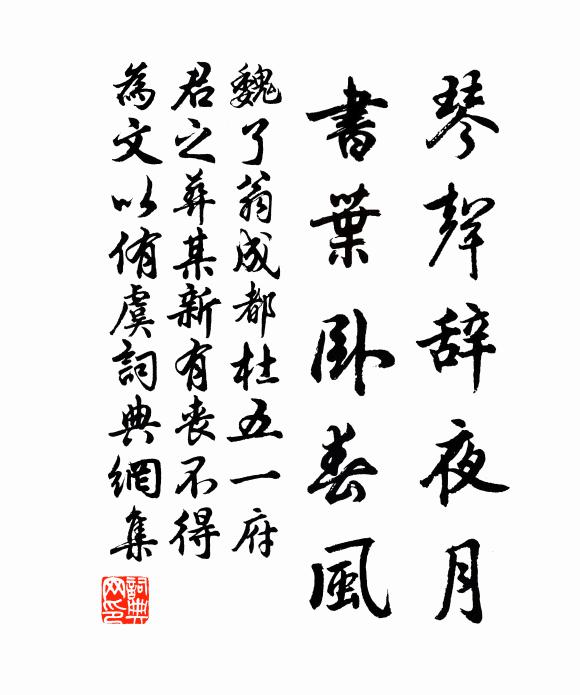 琴聲辞夜月
書葉卧春風
魏了翁成都杜五一府
君之葬某新有丧不得
為文以侑虞詞典網集
詞典
网印